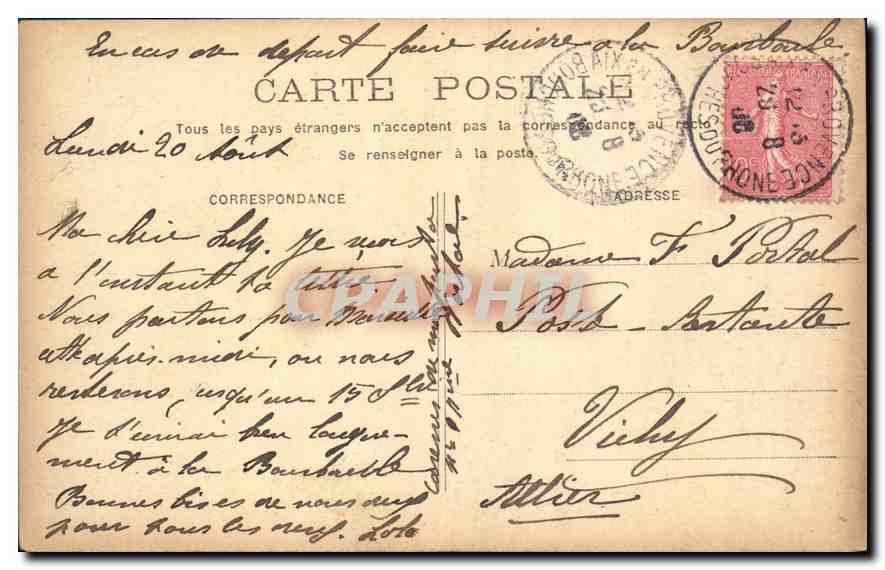 En cas de depart faire suivre a la Bourboule.
CARTE POSTALE
Tous les pays étrangers n'acceptent pas la correspondance au recto
Se renseigner à la poste.
Lundi 20 Août
CORRESPONDANCE
ADRESSE
Ma chère Lily. Je reçois
a l'instant ta lettre.
Nous partons pour
après-midi, ou nous
resterons, jusqu'au 15
Je t'écrirai bien longue-
ment à la Bourboule
Bonnes bises de nous deux
pour vous les deux. Lolo
Madame F Portal
Poste Restante
Vichy
Allier
CPAPHIL
AIX EN PROVENCE
BCHES DU RHONE